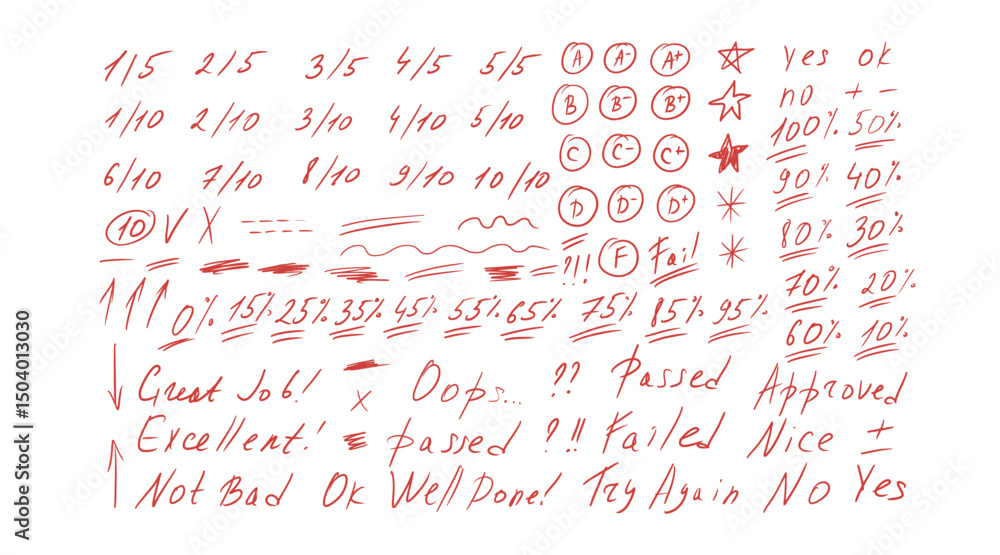 1/5 2/5 3/5 4/5 5/5 A A- A+ yes ok
1/10 2/10 3/10 4/10 5/10 B B- B+ no + -
100% 50%
6/10 7/10 8/10 9/10 10/10 C C- C+ 90% 40%
10 V X D D- D+ 80% 30%
?!! F Fail 70% 20%
0% 15% 25% 35% 45% 55% 65% 75% 85% 95% 60% 10%
Great Job! x Oops... ?? Passed Approved
Excellent! passed ?!! Failed Nice ±
Not Bad Ok Well Done! Try Again No Yes
Adobe Stock | #1504013030
Adobe Stock